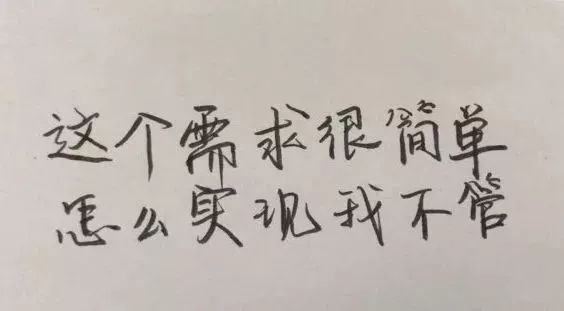 这个需求很简单
怎么实现我不管